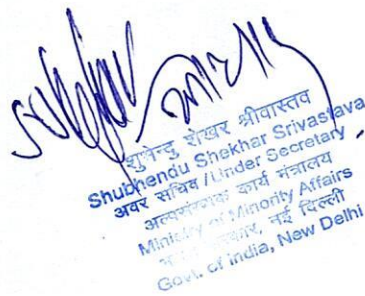 शुभेन्दु शेखर श्रीवास्तव
Shubhendu Shekhar Srivastava
अवर सचिव / Under Secretary
अल्पसंख्यक कार्य मंत्रालय
Ministry of Minority Affairs
नई दिल्ली
Govt. of India, New Delhi